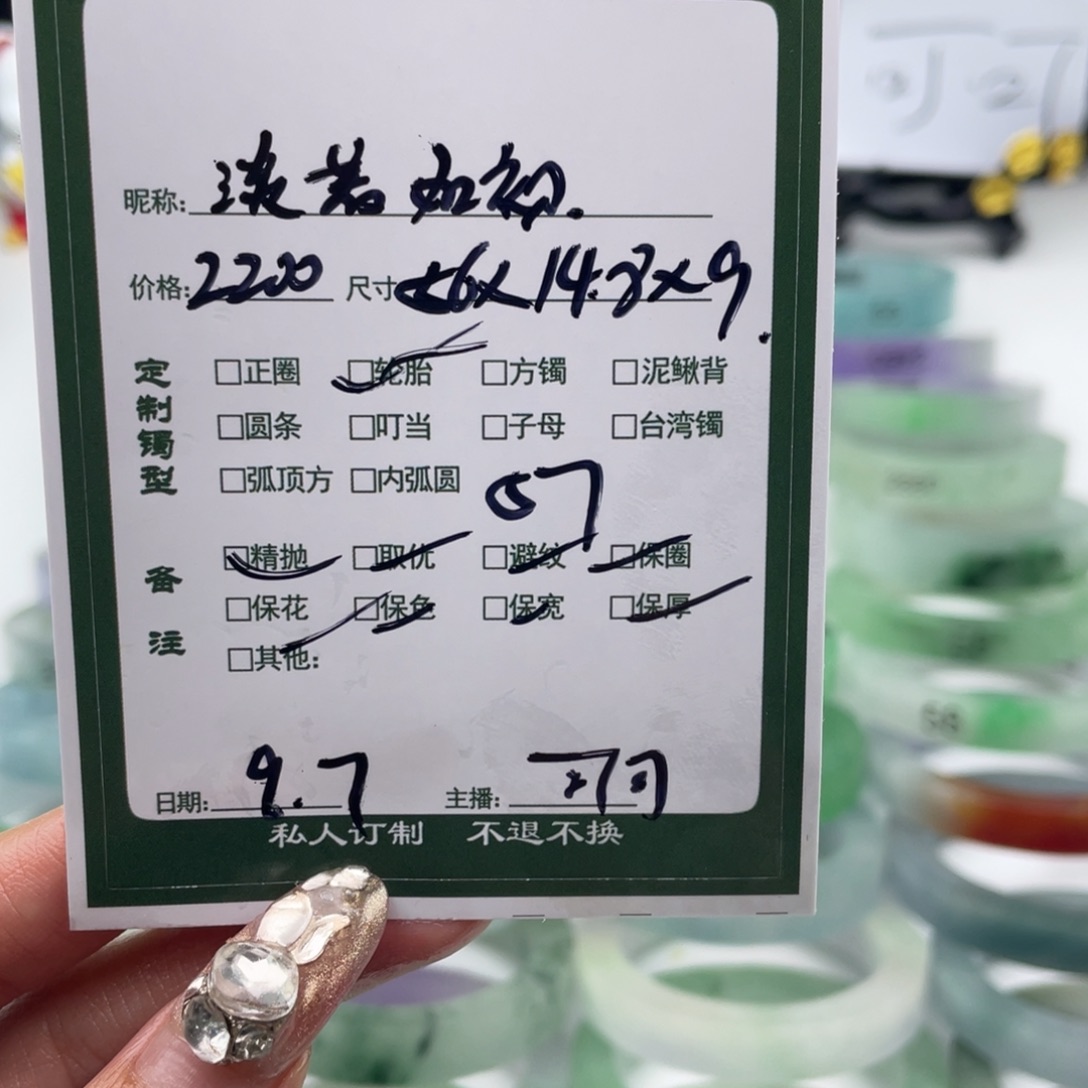 昵称: 淡若如初.
价格: 2200 尺寸 56×14.8×9.
定制镯型
□正圈 □轮胎 □方镯 □泥鳅背
□圆条 □叮当 □子母 □台湾镯
□弧顶方 □内弧圆
57
备注
□精抛 □取优 □避纹 □保圈
□保花 □保色 □保宽 □保厚
□其他:
日期: 9.7 主播: 可可
私人订制 不退不换
58